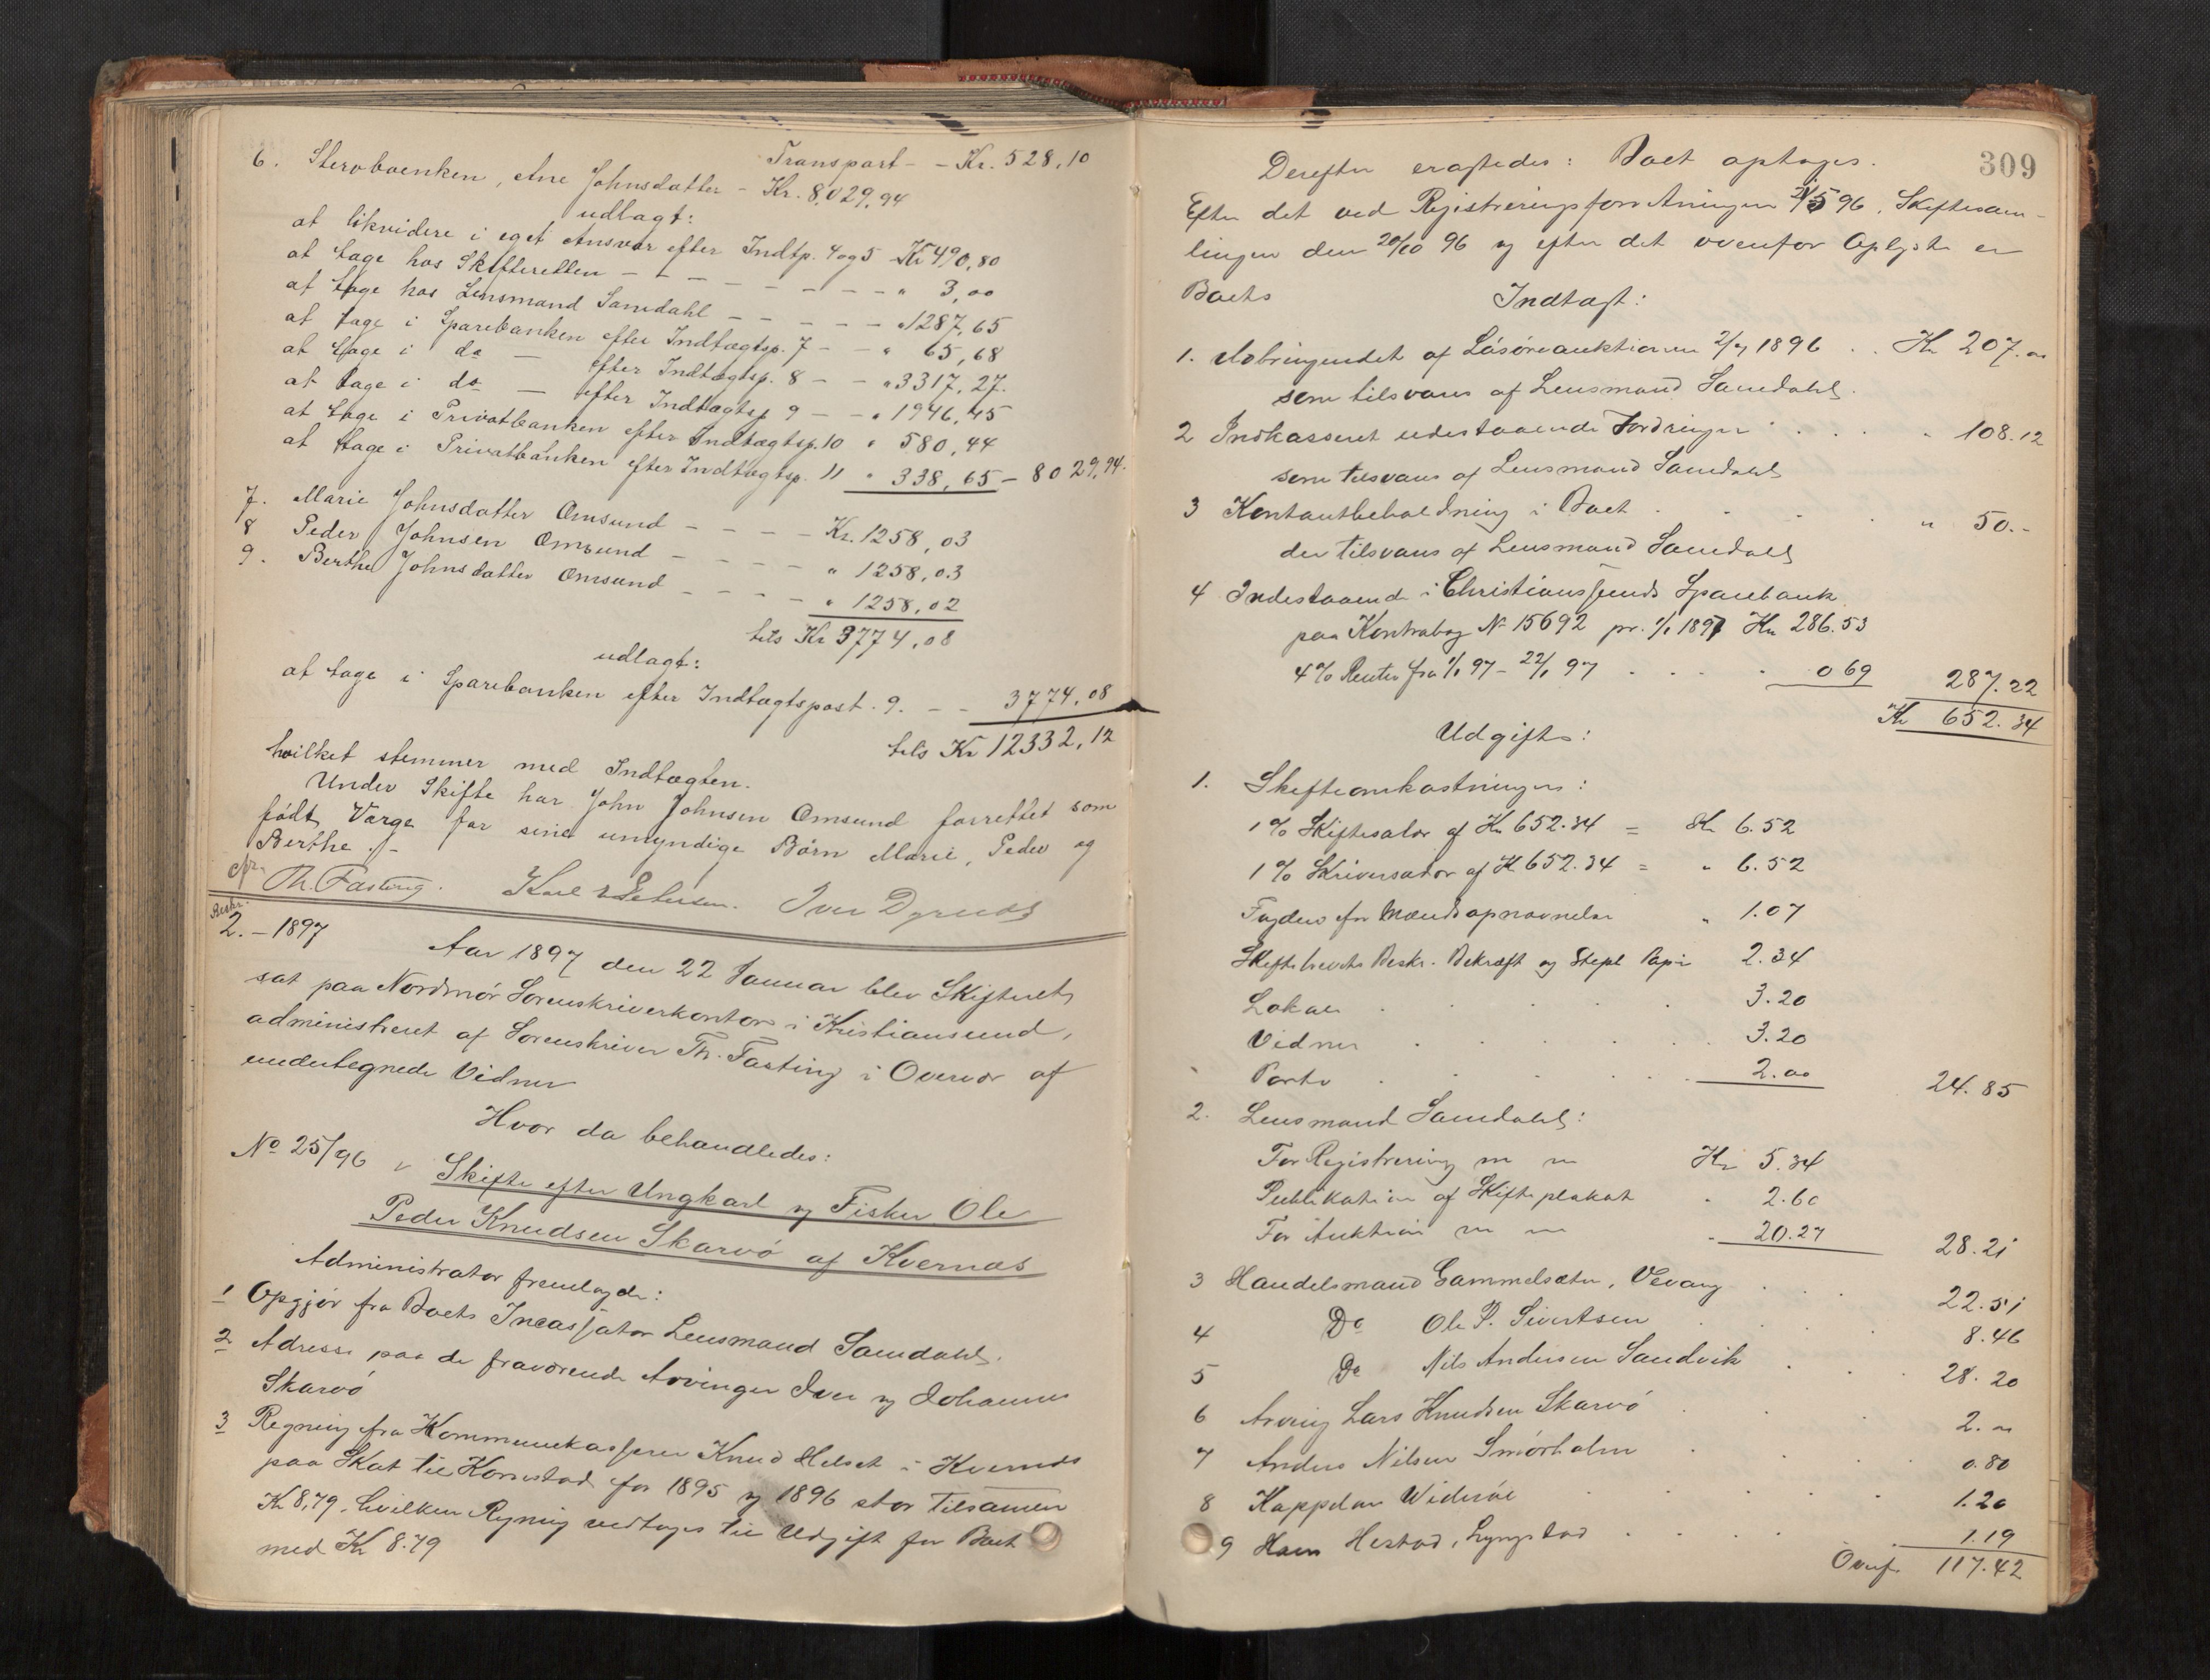 Transport - - Kr. 528,10
6. Stervboenken, Ane Johnsdatter - Kr. 8,029,94
udlagt:
at likvidere i eget Ansvar efter Indtp. 4 og 5 - Kr 490,80
at tage hos Skifteretten - - - - - - - - " 3,00
at tage hos Lensmand Samdahl - - - - - " 1287,65
at tage i Sparebanken efter Indtægtsp. 7 - - " 65,68
at tage i do - efter Indtægtsp. 8 - - " 3317,27.
at tage i do - efter Indtægtsp 9 - - " 1946,45
at tage i Privatbanken efter Indtægtsp. 10 " 580,44
at tage i Privatbanken efter Indtægtsp. 11 " 338,65 - 8029,94.
7. Marie Johnsdatter Omsund - - - - Kr. 1258,03
8 Peder Johnsen Omsund - - - - " 1258,03
9. Berthe Johnsdatter Omsund - - - - " 1258,02
tils Kr 3774,08
udlagt:
at tage i Sparebanken efter Indtægtspost. 9. - - 3774,08
tils Kr 12332,12
hvilket stemmer med Indtægten.
Under Skifte har John Johnsen Omsund forrettet som
født Værge for sine umyndige Børn Marie, Peder og
Berthe. -
Th. Fasting. Karl Petersen. Iver Dyrnæs
Beskr.
2. - 1897
Aar 1897 den 22 Januar blev Skifteret
sat paa Nordmør Sorenskriverkontor i Kristiansund,
administreret af Sorenskriver Th. Fasting i Overvær af
undertegnede Vidner
Hvor da behandledes:
No 25/96 Skifte efter Ungkarl og Fisker Ole
Peder Knudsen Skarvø af Kvernæs
Administrator fremlagde:
1 Opgjør fra Boets Incassator Lensmand Samdahl.
2 Adresse paa de fraværende Arvinger Iver og Johannes
Skarvø
3 Regning fra Kommunekasserer Knud Helset i Kvernæs
paa Skat til Kornstad for 1895 og 1896 stor tilsammen
Kr 8,79, hvilken Regning vedtages til Udgift for Boet
med Kr 8.79
309
Derefter eragtedes: Boet optages.
Efter det ved Registreringsforretningen 21/5 96, Skiftesam-
lingen den 20/10 96 og efter det ovenfor Oplyste er
Boets Indtægt:
1. Udbringendet af Løsøreauktionen 2/7 1896 . . Kr 207.00
som tilsvares af Lensmand Samdahl.
2 Indkasseret udestaaende Fordringer . . . " 108.12
som tilsvares af Lensmand Samdahl
3 Kontantbeholdning i Boet . . . . " 50.-
der tilsvares af Lensmand Samdahl
4 Indestaaende i Christianssunds Sparebank
paa Kontrabog No 15692 pr. 1/1 1897 Kr 286.53
4% Renter fra 1/1 97 - 22/1 97 . . . . 0 69 287.22
Kr 652.34
Udgifter:
1. Skifteomkostninger:
1% Skiftesalær af Kr 652.34 = Kr 6.52
1% Skriversalær af Kr 652.34 = " 6.52
Fogden for Mændsopnævnelse " 1.07
Skiftebrevets Beskr. Bekræft og Stepl Papir 2.34
Lokale . . . . . 3.20
Vidner . . . . . 3.20
Porto . . . . . 2.00 24.85
2. Lensmand Samdahl:
For Registrering m m Kr 5.34
Publikation af Skifteplakat " 2.60
For Auktion m m " 20.27 28.21
3 Handelsmand Gammelsæter, Vevang . . . 22.51
4 Do Ole P. Sivertsen . . . 8.46
5 Do Nils Andersen Sandvik . . . 28.20
6 Arving Lars Knudsen Skarvø . . . 2.00
7 Anders Nilsen Smørholm . . . 0.80
8 Kappelan Widerøe . . . . 1.20
9 Hans Hestad, Lyngstad . . . . 1.19
Overf. 117.42